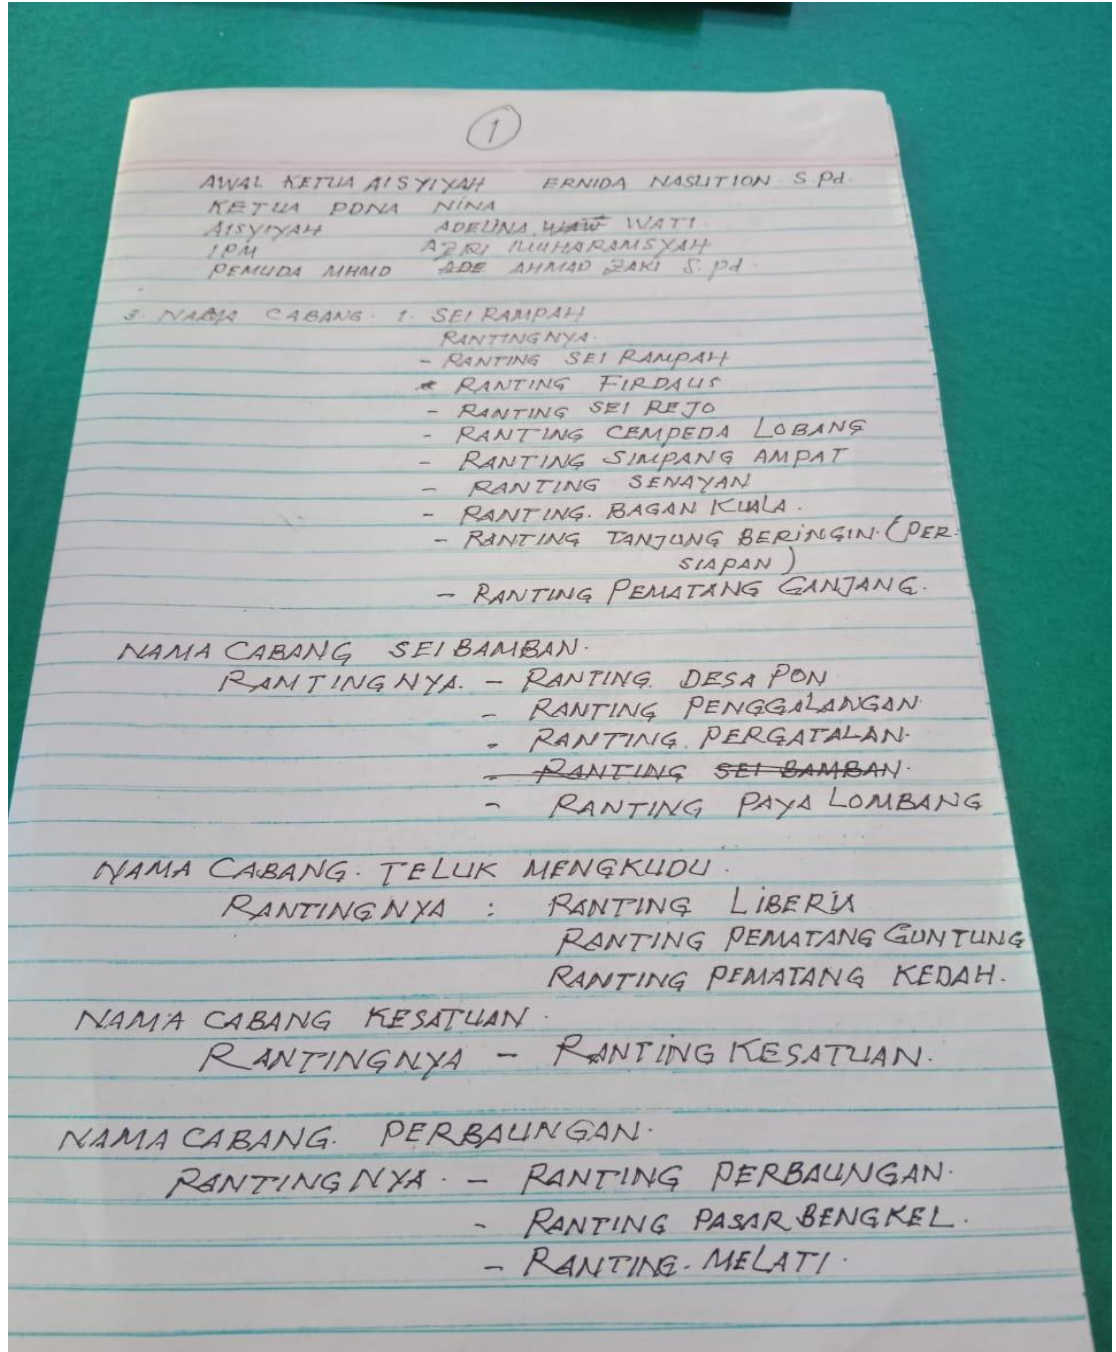 1
AWAL KETUA AISYIYAH ERNIDA NASUTION S.Pd.
KETUA PDNA NINA
AISYIYAH ADELINA WATI.
IPM AZRI MUHARAMSYAH
PEMUDA MHMD ADE AHMAD ZAKI S.Pd.
3. NAMA CABANG. 1. SEI RAMPAH
RANTINGNYA.
- RANTING SEI RAMPAH
- RANTING FIRDAUS
- RANTING SEI REJO
- RANTING CEMPEDA LOBANG
- RANTING SIMPANG AMPAT
- RANTING SENAYAN
- RANTING. BAGAN KUALA.
- RANTING TANJUNG BERINGIN. (PER-
SIAPAN)
- RANTING PEMATANG GANJANG.
NAMA CABANG SEI BAMBAN.
RAMTINGNYA. - RANTING. DESA PON
- RANTING PENGGALANGAN.
- RANTING. PERGATALAN.
- RANTING SEI BAMBAN.
- RANTING PAYA LOMBANG
NAMA CABANG. TELUK MENGKUDU.
RANTINGNYA : RANTING LIBERIA
RANTING PEMATANG GUNTUNG
RANTING PEMATANG KEDAH.
NAMA CABANG KESATUAN.
RANTINGNYA - RANTING KESATUAN.
NAMA CABANG. PERBAUNGAN.
RANTINGNYA. - RANTING PERBAUNGAN.
- RANTING PASAR BENGKEL.
- RANTING. MELATI.